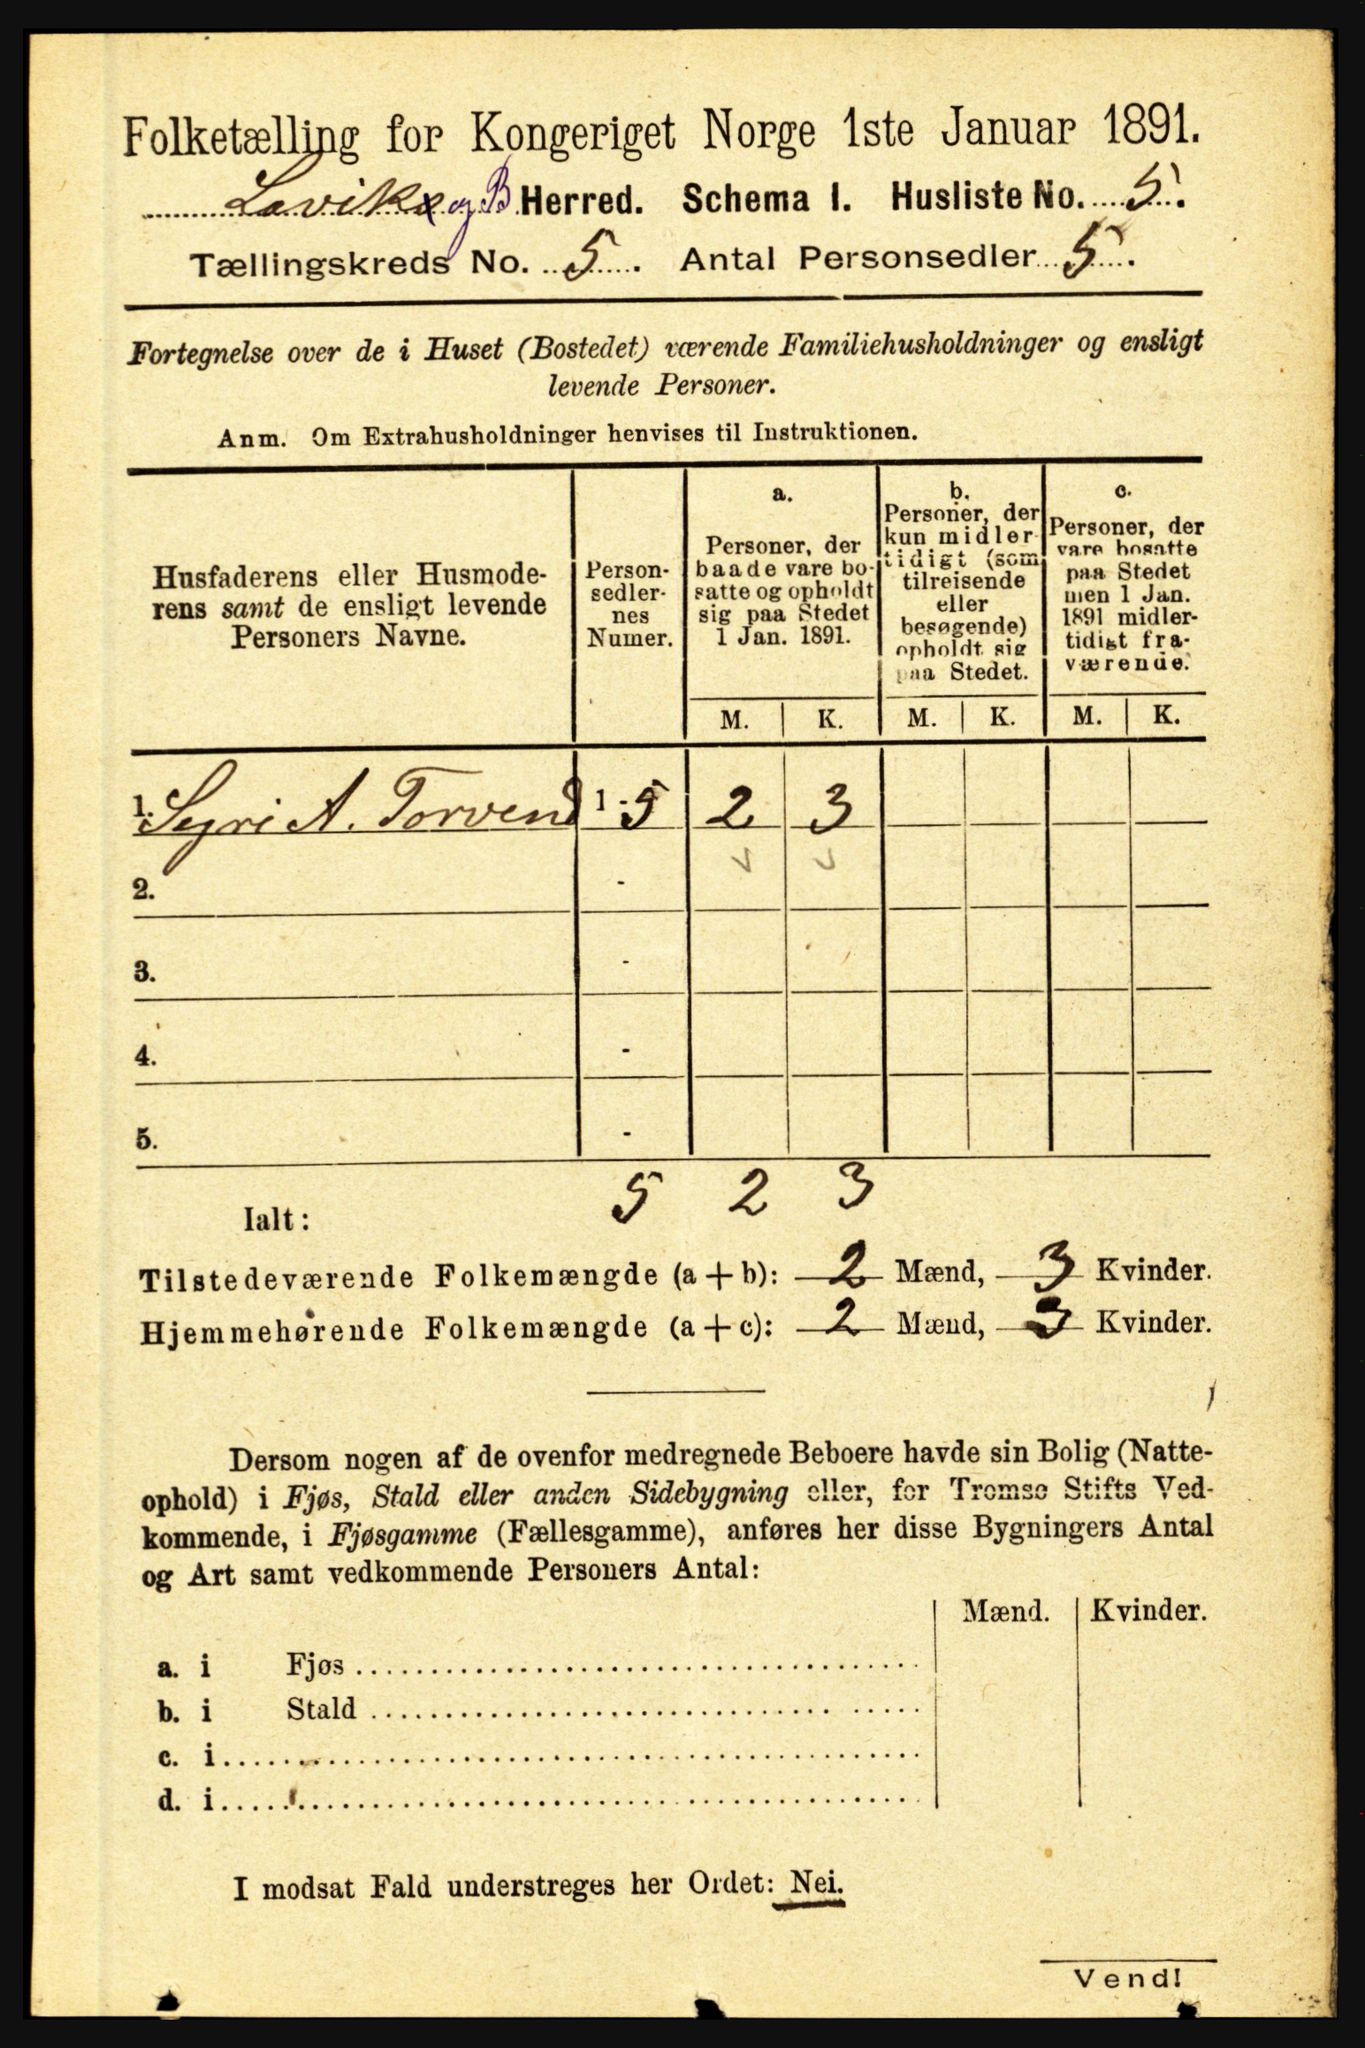 Folketælling for Kongeriget Norge 1ste Januar 1891.
Lavik og B Herred. Schema I. Husliste No. 5.
Tællingskreds No. 5. Antal Personsedler 5.
Fortegnelse over de i Huset (Bostedet) værende Familiehusholdninger og ensligt
levende Personer.
Anm. Om Extrahusholdninger henvises til Instruktionen.
Husfaderens eller Husmode-
rens samt de ensligt levende
Personers Navne.
Person-
sedler-
nes
Numer.
a.
Personer, der
baade vare bo-
satte og opholdt
sig paa Stedet
1 Jan. 1891.
b.
Personer, der
kun midler-
tidigt (som
tilreisende
eller
besøgende)
opholdt sig
paa Stedet.
c.
Personer, der
vare bosatte
paa Stedet
men 1 Jan.
1891 midler-
tidigt fra-
værende.
M. K. M. K. M. K.
1. Syri A. Torvend 1 - 5 2 3
2. -
3. -
4. -
5. -
Ialt: 5 2 3
Tilstedeværende Folkemængde (a + b): 2 Mænd, 3 Kvinder.
Hjemmehørende Folkemængde (a + c): 2 Mænd, 3 Kvinder.
Dersom nogen af de ovenfor medregnede Beboere havde sin Bolig (Natte-
ophold) i Fjøs, Stald eller anden Sidebygning eller, for Tromsø Stifts Ved-
kommende, i Fjøsgamme (Fællesgamme), anføres her disse Bygningers Antal
og Art samt vedkommende Personers Antal:
Mænd. Kvinder.
a. i Fjøs
b. i Stald
c. i
d. i
I modsat Fald understreges her Ordet: Nei.
Vend!